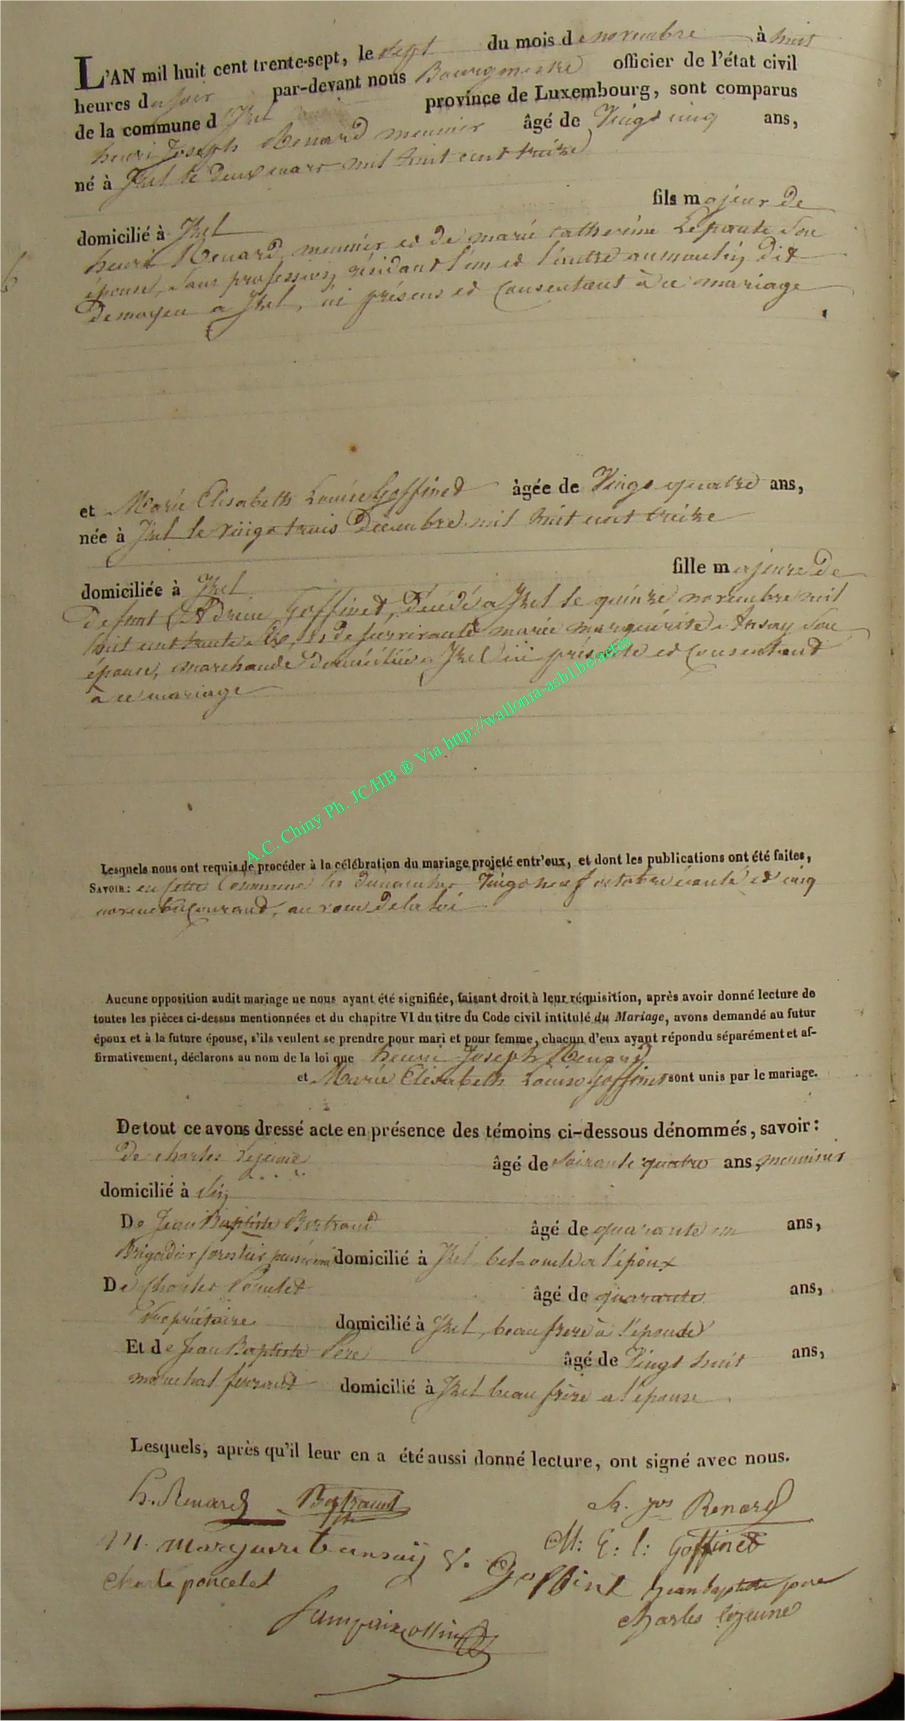 L'AN mil huit cent trente-sept, le sept du mois de novembre à huit
heures du soir par-devant nous Bourgmestre officier de l'état civil
de la commune d'Izel province de Luxembourg, sont comparus
henri Joseph Renard meunier âgé de Vingt cinq ans,
né à Izel le deux mars mil huit cent treize
fils majeur de
domicilié à Izel
henri Renard, meunier et de marie catherine Lepoute Son
épouse, Sans profession, résidant l'un et l'autre au moulin dit
Demoyen a Izel, ici présens et Consentant à ce mariage
et Marie Elisabeth Louise Goffinet âgée de Vingt quatre ans,
née à Izel le vingt trois Décembre mil huit cent treize
fille majeure de
domiciliée à Izel
défunt Adrien Goffinet, Décédé a Izel le quinze novembre mil
huit cent trente Six, et de Survivante marie marguerite Ansay Son
épouse, marchande Domiciliée a Izel ici présente et Consentant
à ce mariage
A.C. Chiny Ph. JC/HB ® Via http://wallonia-asbl.be/actes
Lesquels nous ont requis de procéder à la célébration du mariage projeté entr'eux, et dont les publications ont été faites,
SAVOIR: en cette Commune les dimanches Vingt neuf octobre écoulé et cinq
novembre Courant, au nom de la loi
Aucune opposition audit mariage ne nous ayant été signifiée, faisant droit à leur réquisition, après avoir donné lecture de
toutes les pièces ci-dessus mentionnées et du chapitre VI du titre du Code civil intitulé du Mariage, avons demandé au futur
époux et à la future épouse, s'ils veulent se prendre pour mari et pour femme, chacun d'eux ayant répondu séparément et af-
firmativement, déclarons au nom de la loi que henri Joseph Renard
et Marie Elisabeth Louise Goffinet sont unis par le mariage.
De tout ce avons dressé acte en présence des témoins ci-dessous dénommés, savoir:
De charles Lejeune âgé de Soixante quatre ans, meunier
domicilié à
De Jean Baptiste Bertrand âgé de quarante un ans,
Brigadier forestier domicilié à Izel, bel oncle a l'époux
De charles Poncelet âgé de quarante ans,
Propriétaire domicilié à Izel, beau frere à l'épouse
Et de Jean Baptiste Père âgé de Vingt huit ans,
maréchal ferrant domicilié à Izel beau frère a l'épouse
Lesquels, après qu'il leur en a été aussi donné lecture, ont signé avec nous.
h. Renard Bertrand h. jos Renard
M. Marguerite ansay Ve Goffinet M: E: l: Goffinet
Charle poncelet jean baptiste pere
charles lejeune